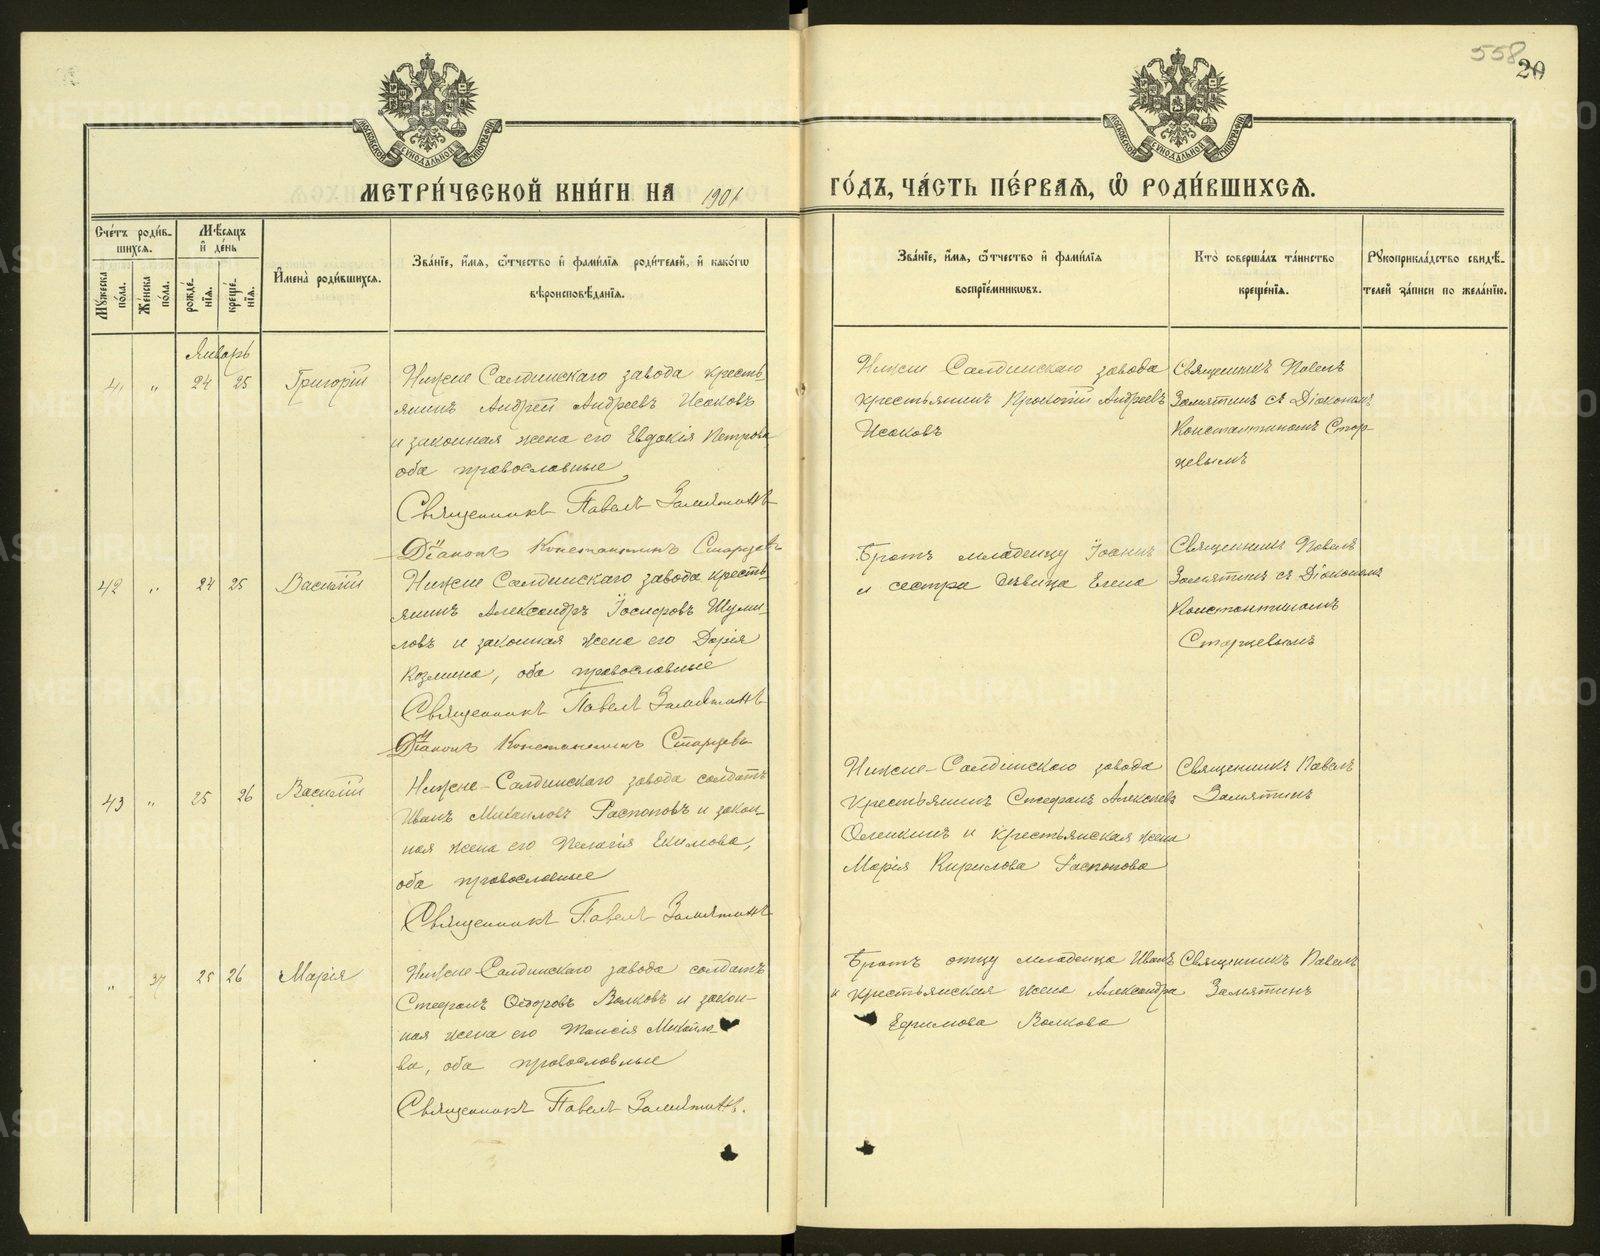 558
20
МОСКОВСКОЙ СУНОДАЛЬНОЙ ТИПОГРАФІИ
МОСКОВСКОЙ СУНОДАЛЬНОЙ ТИПОГРАФІИ
МЕТРИ́ЧЕСКОЙ КНИ́ГИ НА 1901 ГО́ДЪ, ЧА́СТЬ ПЕ́РВАѦ, Ѡ҆ РОДИ́ВШИХСѦ.
Сче́тъ роди́в-
шихсѧ.
Мꙋжеска по́ла.
Же́нска по́ла.
Мѣ́сѧцъ и҆ де́нь
рожде́нїѧ.
креще́нїѧ.
И҆мена̀ роди́вшихсѧ.
Зва́нїе, и҆́мѧ, ѻ҆́тчество и҆ фами́лїѧ роди́телей, и҆ како́гѡ
вѣроисповѣ́данїѧ.
Зва́нїе, и҆́мѧ, ѻ҆́тчество и҆ фами́лїѧ
воспрїе́мникѡвъ.
Кто̀ соверша́лъ та́инство
креще́нїѧ.
Рꙋкоприкла́дство свидѣ́-
телей за́писи по жела́нїю.
Январь
41 " 24 25 Григорій
Нижне Салдинскаго завода кресть-
янинъ Андрей Андреевъ Исаковъ
и законная жена его Евдокія Петрова
оба православные
Священникъ Павелъ Замятинъ
Діаконъ Константинъ Старцевъ
Нижне Салдинскаго завода
крестьянинъ Прокопій Андреевъ
Исаковъ
Священникъ Павелъ
Замятинъ съ Діакономъ
Константиномъ Стар-
цевымъ
42 " 24 25 Василій
Нижне Салдинскаго завода кресть-
янинъ Александръ Іосифовъ Шуми-
ловъ и законная жена его Дарія
Козмина, оба православные
Священникъ Павелъ Замятинъ
Діаконъ Константинъ Старцевъ
Братъ младенцу Іоаннъ
и сестра дѣвица Елена
Священникъ Павелъ
Замятинъ съ Діакономъ
Константиномъ
Старцевымъ
43 " 25 26 Василій
Нижне-Салдинскаго завода солдатъ
Иванъ Михаиловъ Распоповъ и закон-
ная жена его Пелагія Екимова,
оба православные
Священникъ Павелъ Замятинъ
Нижне-Салдинскаго завода
крестьянинъ Стефанъ Алексѣевъ
Оленкинъ и крестьянская жена
Марія Кирилова Распопова
Священникъ Павелъ
Замятинъ
" 37 25 26 Марія
Нижне-Салдинскаго завода солдатъ
Стефанъ Ѳедоровъ Волковъ и закон-
ная жена его Таисія Михайло-
ва, оба православные
Священникъ Павелъ Замятинъ.
Братъ отцу младенца Иванъ
и крестьянская жена Александра
Ефимова Волкова
Священникъ Павелъ
Замятинъ
METRIKI.GASO-URAL.RU